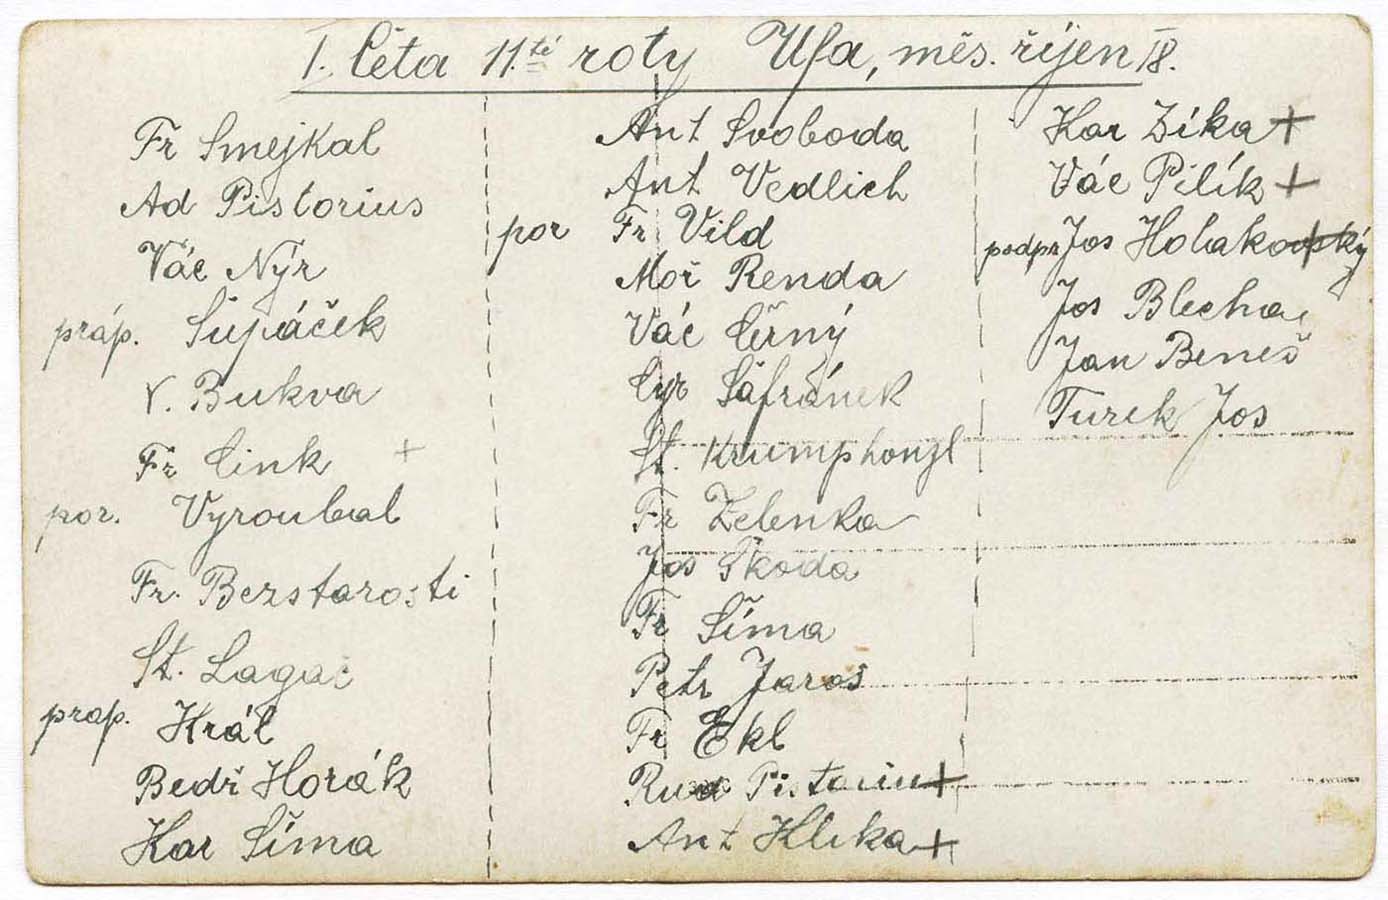 I. četa 11.té roty Ufa, měs. říjen 18.
Fr Smejkal
Ad Pistorius
Vác Nýr
práp. Šupáček
V. Bukva
Fr Cink +
por. Vyroubal
Fr. Bezstarosti
St. Lagac
prap. Král
Bedř Horák
Kar Šíma
Ant Svoboda
Ant Vedlich
por Fr Vild
Moř Renda
Vác Černý
Cyr Šafránek
St. Krumphonzl
Fr Zelenka
Jos Škoda
Fr Šíma
Petr Jaroš
Fr Ekl
Rud Pistorius +
Ant Klika +
Kar Zíka +
Vác Pilík +
podpr Jos Holakovský
Jos Blecha
Jan Beneš
Turek Jos